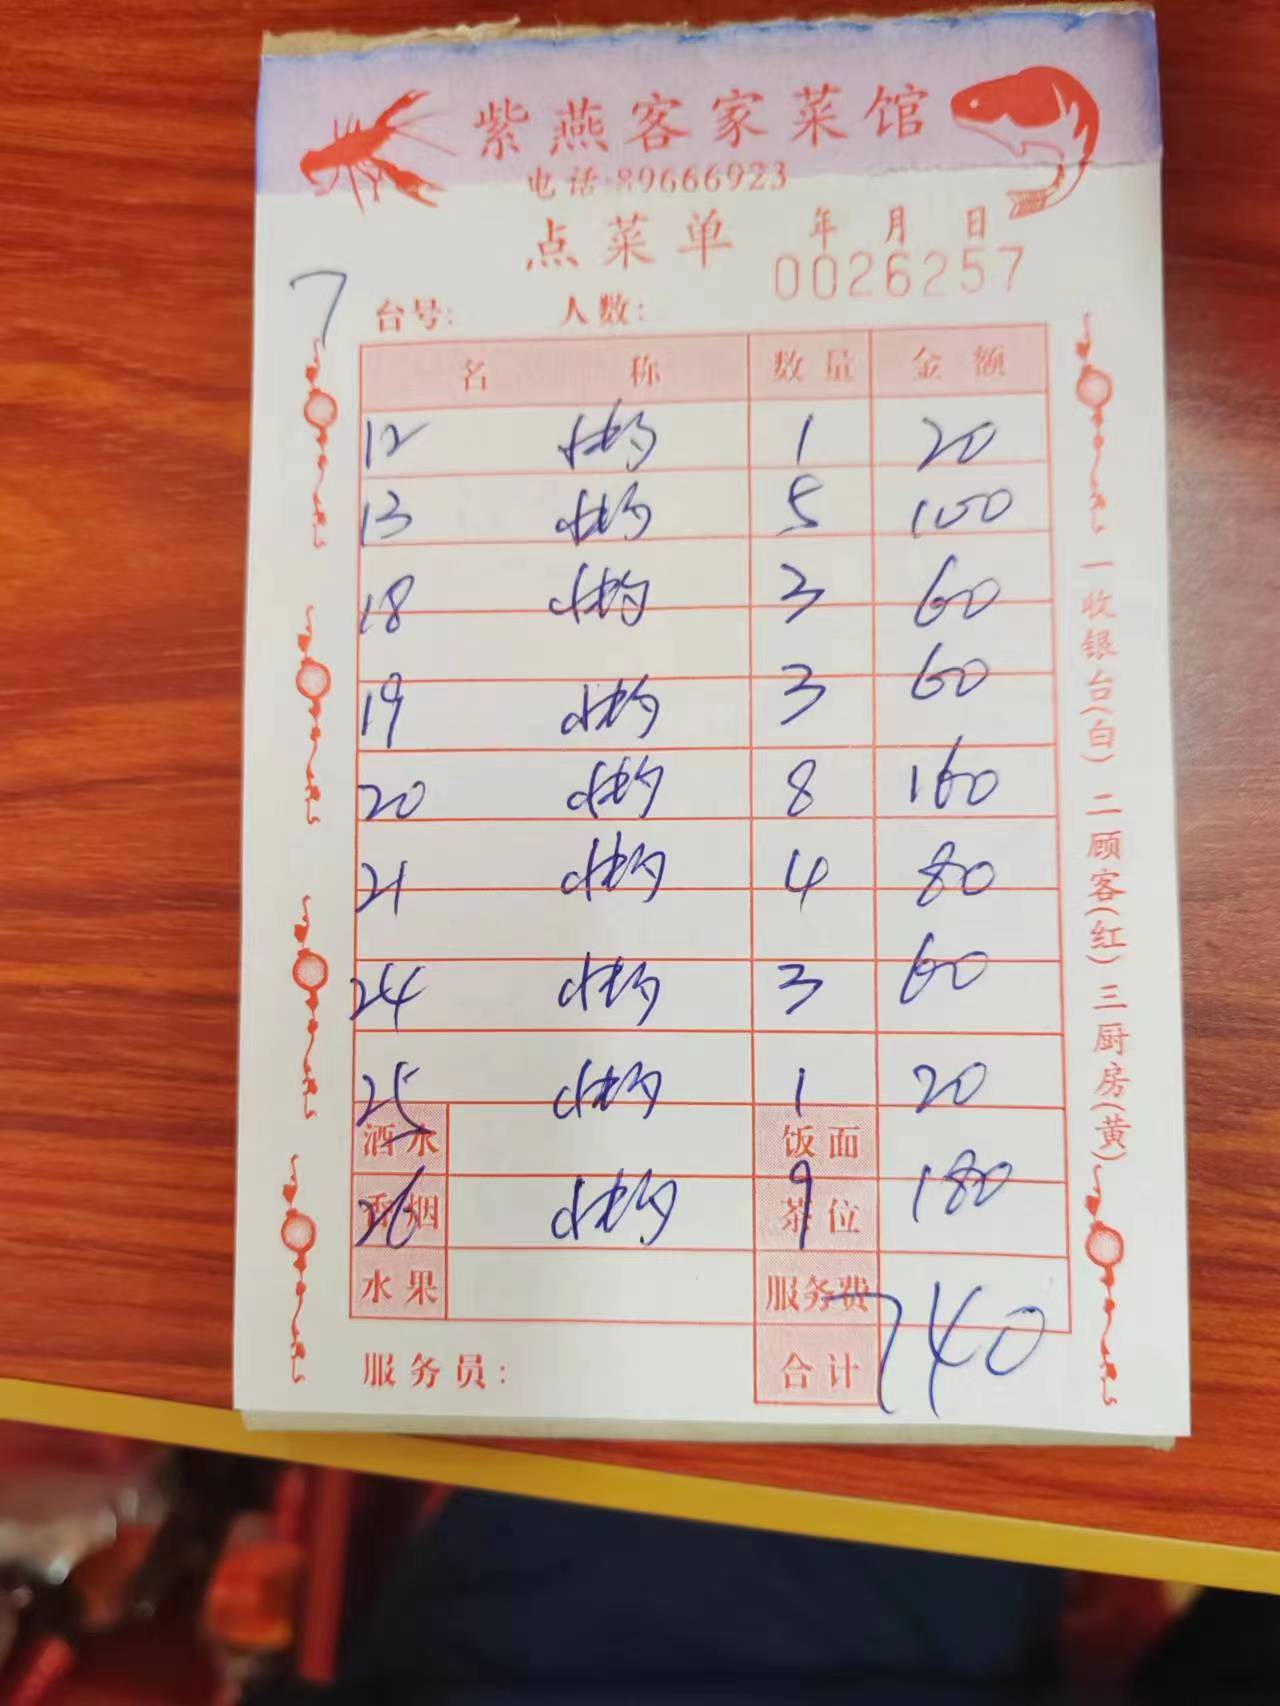 紫燕客家菜馆
电话:89666923
点菜单 年 月 日
0026257
7
台号: 人数:
名 称 数量 金额
12 1 20
13 5 100
18 3 60
19 3 60
20 8 160
21 4 80
24 3 60
25 1 20
酒水 饭面
26 9 180
香烟 茶位
水果 服务费
服务员: 合计 740
一收银台(白) 二顾客(红) 三厨房(黄)